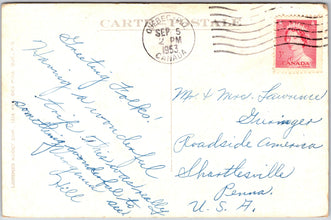 CARTE POSTALE
QUEBEC
SEP 5
2 PM
1953
CANADA
CANADA
Greetings Folks!
Having a wonderful
trip. This is really
something wonderful to
see.
Hill
Mr. & Mrs. Lawrence
Gieringer
Roadside America
Shartlesville
Penna.
U. S. A.